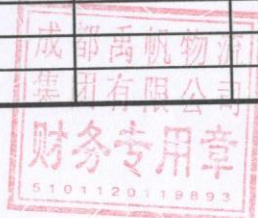 成都禹帆物流
集团有限公司
财务专用章
5101120119893